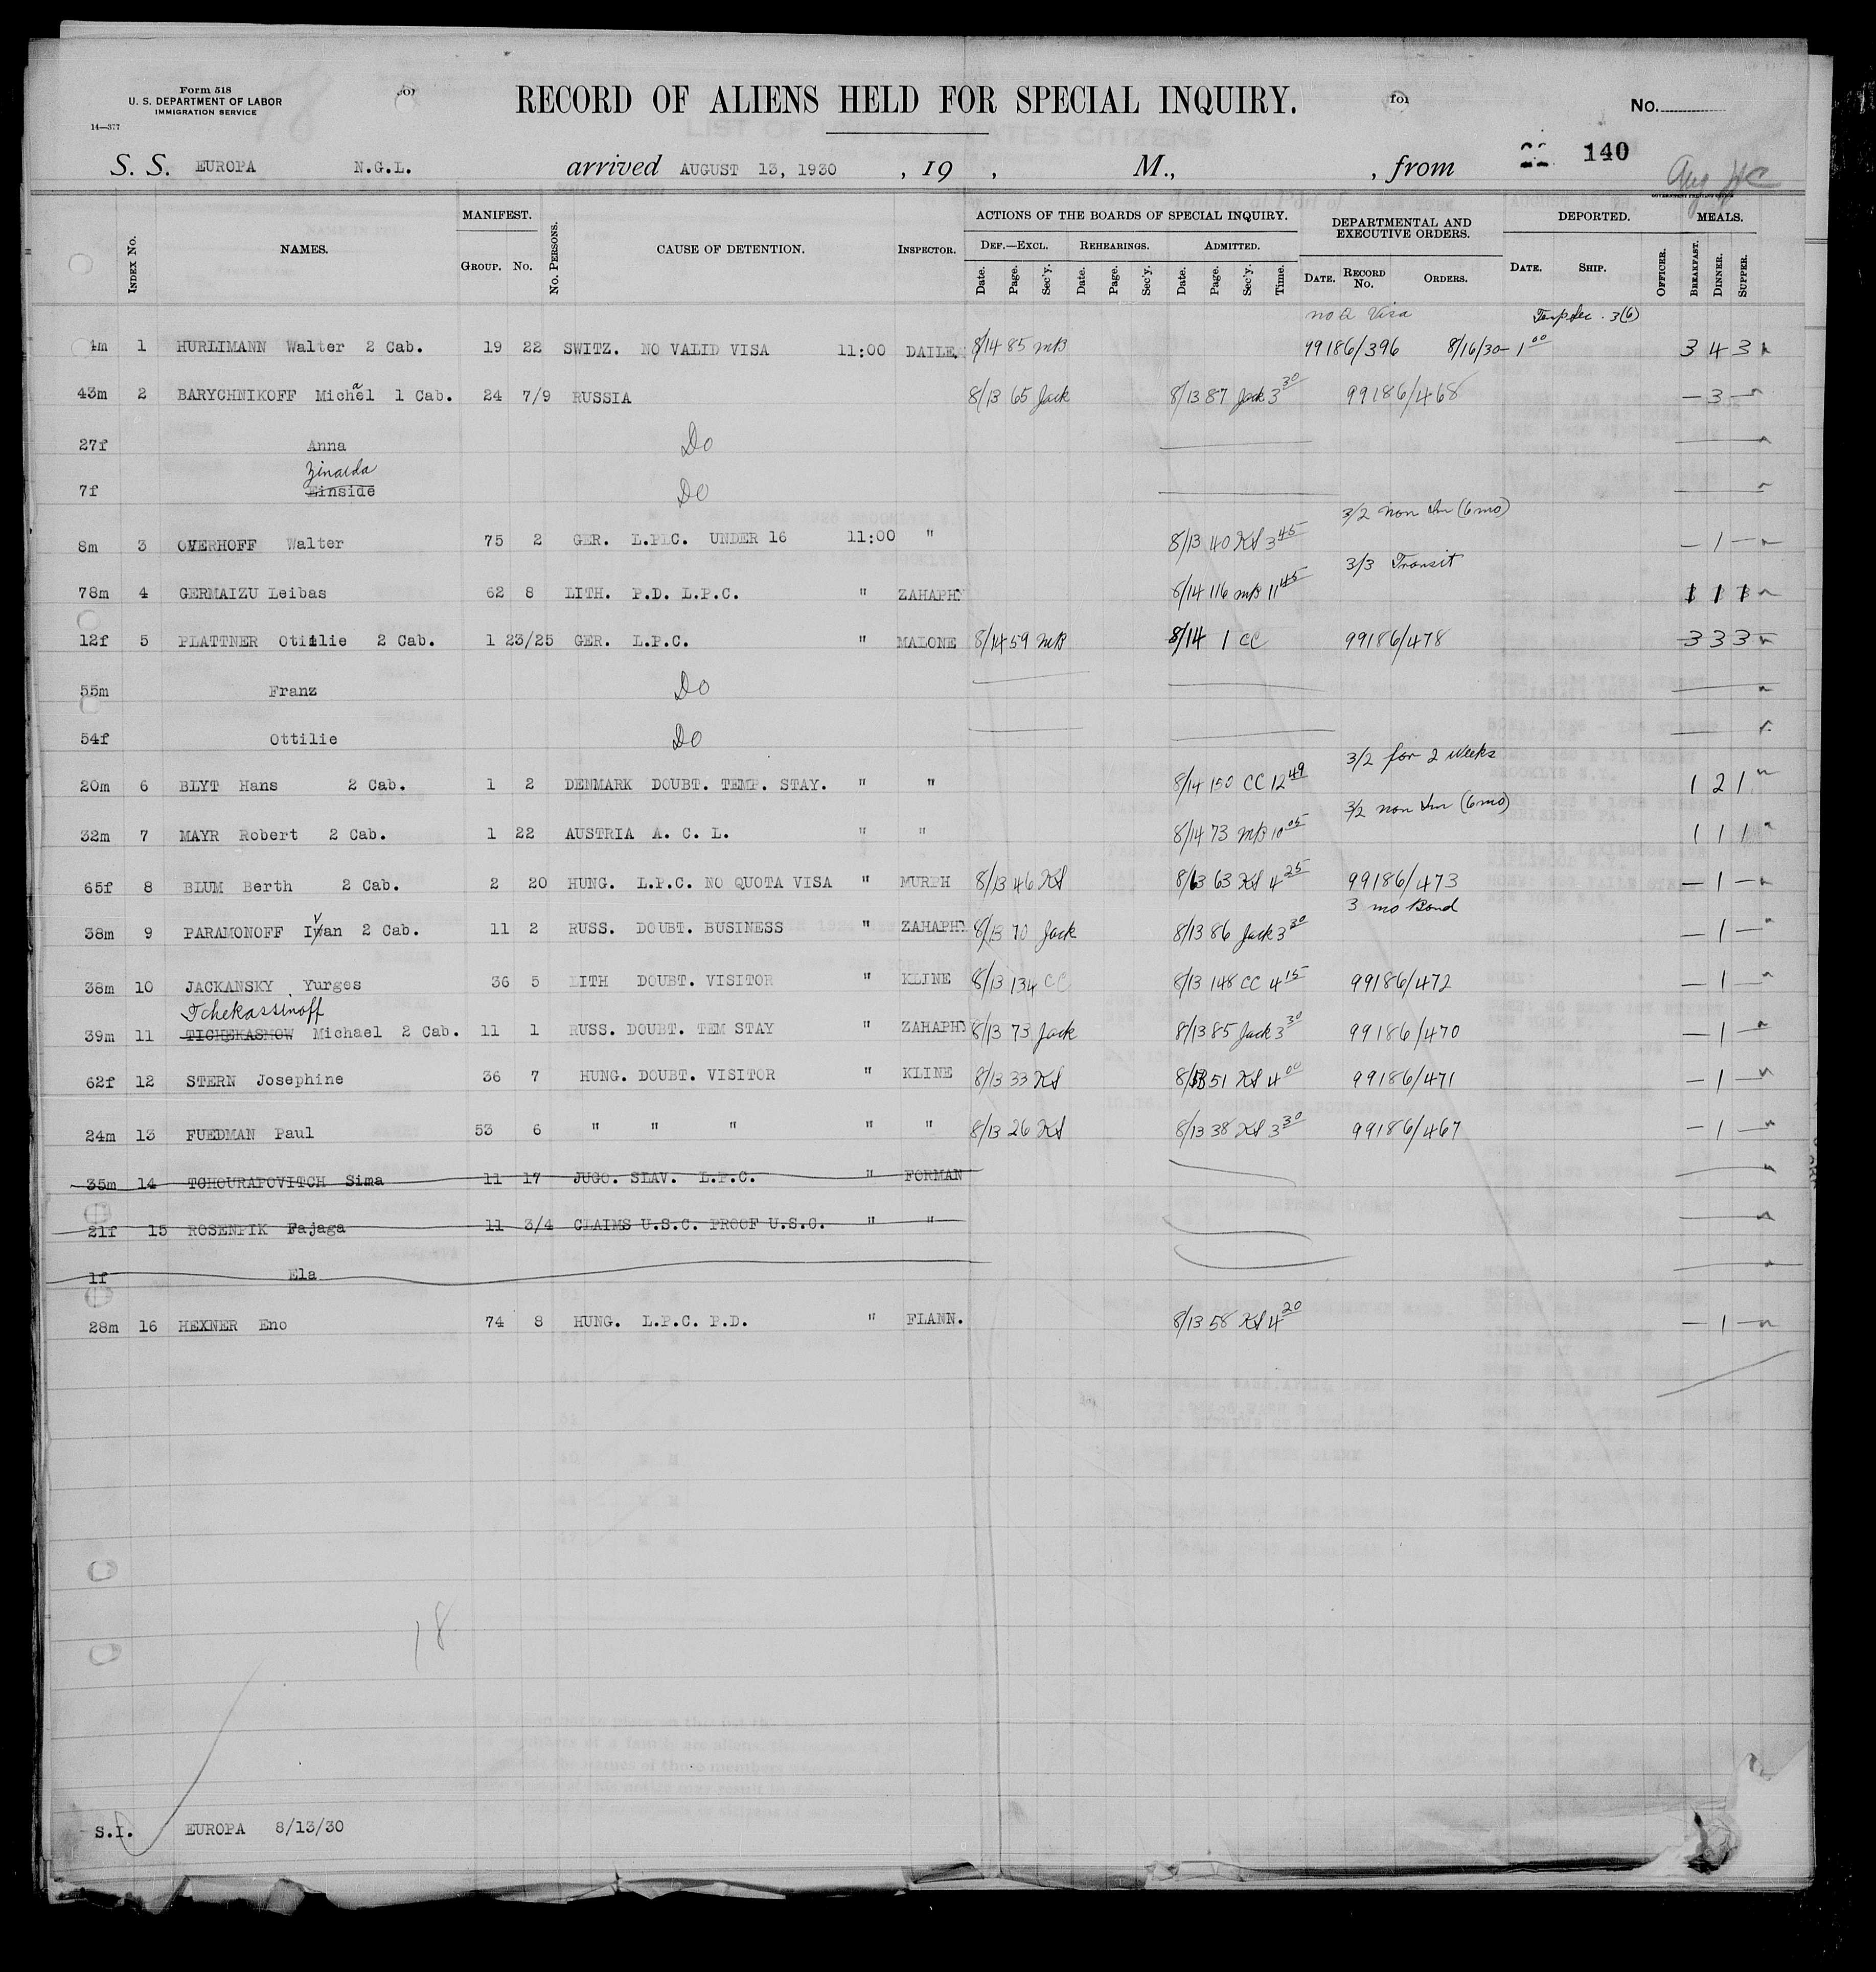 Form 518
U. S. DEPARTMENT OF LABOR
IMMIGRATION SERVICE
14—377
RECORD OF ALIENS HELD FOR SPECIAL INQUIRY.
No.
S. S. EUROPA N.G.L. arrived AUGUST 13, 1930 , 19 , M., , from 140
Aug
GOVERNMENT PRINTING OFFICE
INDEX No. NAMES. MANIFEST. GROUP. No. No. PERSONS. CAUSE OF DETENTION. INSPECTOR. ACTIONS OF THE BOARDS OF SPECIAL INQUIRY. DEF.—EXCL. REHEARINGS. ADMITTED. DEPARTMENTAL AND EXECUTIVE ORDERS. DEPORTED. MEALS.
Date. Page. Sec'y. Date. Page. Sec'y. Date. Page. Sec'y. Time. DATE. RECORD No. ORDERS. DATE. SHIP. OFFICER. BREAKFAST. DINNER. SUPPER.
no Q Visa Temp Sec. 3(6)
4m 1 HURLIMANN Walter 2 Cab. 19 22 SWITZ. NO VALID VISA 11:00 DAILE. 8/14 85 MB 99186/396 8/16/30- 1 00 3 4 3
43m 2 BARYCHNIKOFF Michael 1 Cab. 24 7/9 RUSSIA 8/13 65 Jack 8/13 87 Jack 3 30 99186/468 — 3 —
27f Anna Do
Zinaida
7f Einside Do
3/2 non Im (6mo)
8m 3 OVERHOFF Walter 75 2 GER. L.P.C. UNDER 16 11:00 " 8/13 40 KS 3 45 — 1 —
3/3 Transit
78m 4 GERMAIZU Leibas 62 8 LITH. P.D. L.P.C. " ZAHAPHY 8/14 116 MB 11 45 1 1 1
12f 5 PLATTNER Otiilie 2 Cab. 1 23/25 GER. L.P.C. " MALONE 8/14 59 MB 8/14 1 CC 99186/478 3 3 3
55m Franz Do
54f Ottilie Do
3/2 for 2 weeks
20m 6 BLYT Hans 2 Cab. 1 2 DENMARK DOUBT. TEMP. STAY. " " 8/14 150 CC 12 49 1 2 1
3/2 non Im (6mo)
32m 7 MAYR Robert 2 Cab. 1 22 AUSTRIA A. C. L. " " 8/14 73 MB 10 05 1 1 1
65f 8 BLUM Berth 2 Cab. 2 20 HUNG. L.P.C. NO QUOTA VISA " MURPH 8/13 46 KS 8/13 63 KS 4 25 99186/473 — 1 —
3 mo Bond
38m 9 PARAMONOFF Ivan 2 Cab. 11 2 RUSS. DOUBT. BUSINESS " ZAHAPHY 8/13 70 Jack 8/13 86 Jack 3 30 — 1 —
38m 10 JACKANSKY Yurges 36 5 LITH DOUBT. VISITOR " KLINE 8/13 134 CC 8/13 148 CC 4 15 99186/472 — 1 —
Tchekassinoff
39m 11 TICHEKASNOW Michael 2 Cab. 11 1 RUSS. DOUBT. TEM STAY " ZAHAPHY 8/13 73 Jack 8/13 85 Jack 3 30 99186/470 — 1 —
62f 12 STERN Josephine 36 7 HUNG. DOUBT. VISITOR " KLINE 8/13 33 KS 8/13 51 KS 4 00 99186/471 — 1 —
24m 13 FUEDMAN Paul 53 6 " " " " " 8/13 26 KS 8/13 38 KS 3 30 99186/467 — 1 —
35m 14 TCHOURAPOVITCH Sima 11 17 JUGO. SLAV. L.P.C. " FORMAN
21f 15 ROSENPIK Fajaga 11 3/4 CLAIMS U.S.C. PROOF U.S.C. " "
1f Ela
28m 16 HEXNER Eno 74 8 HUNG. L.P.C. P.D. " FLANN. 8/13 58 KS 4 20 — 1 —
18
S.I. EUROPA 8/13/30